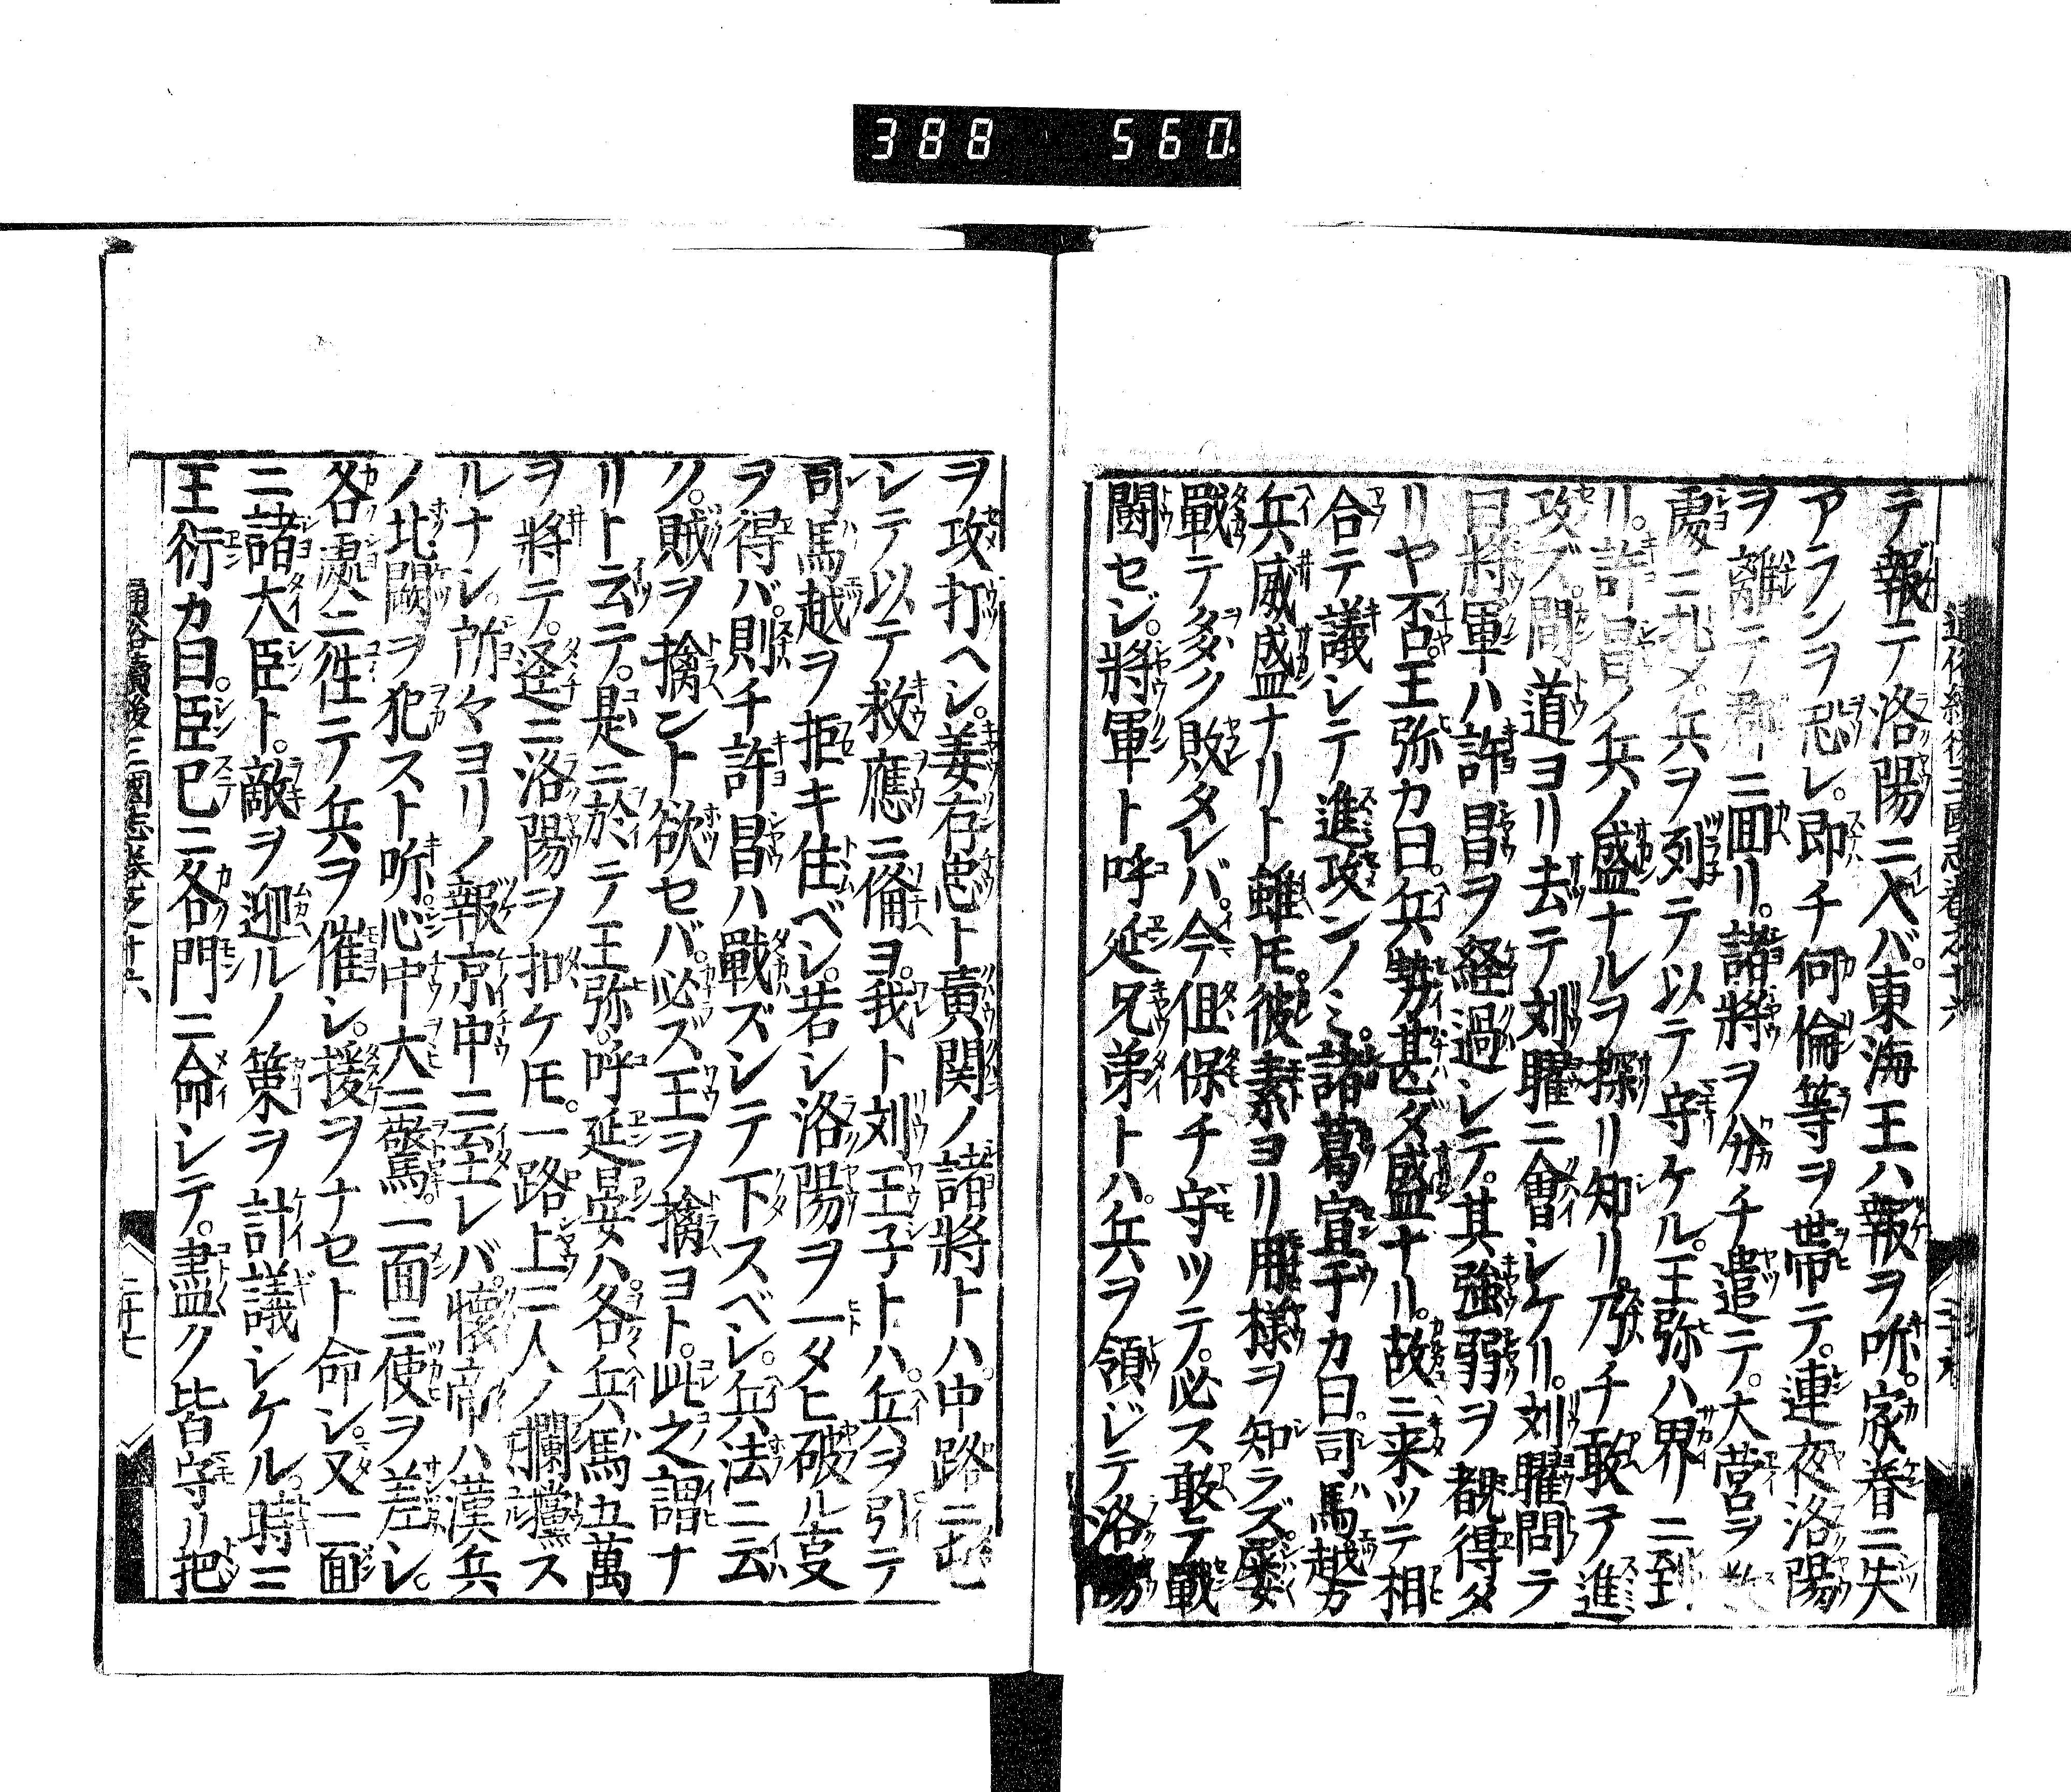 388 560
通俗續後三國志卷之十六
テ報ニテ洛陽ニ入バ。東海王ハ報ヲ听。家眷ニ失
アランヲ恐レ。即チ何倫等ヲ帶テ。連夜洛陽
ヲ離テ郡ニ面リ。諸將ヲ分チ遣テ。大營ヲ
處ニ扎メ。兵ヲ列テ以テ守ケル。王弥ハ界ニ到
リ。許昌ノ兵ノ盛ナルヲ探リ知リ。乃チ敢テ進
攻ズ。間道ヨリ去テ刘曜ニ會シケリ。刘曜問テ
曰。將軍ハ許昌ヲ経過シテ。其強弱ヲ覩得タ
リヤ否。王弥カ曰。兵勢甚ダ盛ナリ。故ニ来ツテ相
合テ議シテ進攻ンノミ。諸葛宣于カ曰。司馬越カ
兵威盛ナリト雖モ。彼素ヨリ用様ヲ知ラズ。屡
戰テ多ク敗タレバ。今伹保チ守ツテ。必ス敢テ戰
鬪セジ。將軍ト呼延兄弟トハ。兵ヲ領ジテ洛陽
ヲ攻打ヘシ。姜存忠ト黄関ノ諸將トハ。中路ニ
シテ以テ救應ニ俻ヨ。我ト刘王子トハ。兵ヲ引テ
司馬越ヲ拒キ住ベシ。若シ洛陽ヲ一タヒ破ル叓
ヲ得バ。則チ許昌ハ戰ズシテ下スベシ。兵法ニ云
ク。賊ヲ擒ント欲セバ。必ズ王ヲ擒ヨト。此之謂ナ
リト云テ。是ニ於テ王弥。呼延晏ハ。各兵馬五萬
ヲ將テ。逕ニ洛陽ヲ扣ケモ。一路上ニ人ノ攔攩ス
ルナシ。所々ヨリノ報京中ニ至レバ。懷帝ハ漢兵
ノ北闕ヲ犯スト听。心中大ニ驚。一面ニ使ヲ差シ。
各處ニ徃テ兵ヲ催シ。援ヲナセト命シ。又一面
ニ諸大臣ト。敵ヲ迎ルノ策ヲ計議シケル。時ニ
王衍カ曰。臣已ニ各門ニ命シテ。盡ク皆守リ把
通俗續後三國志卷之十六
二十七